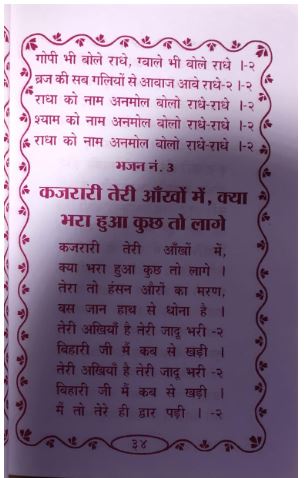 गोपी भी बोले राधे, ग्वाले भी बोले राधे ।-२
ब्रज की सब गलियों से आवाज आवे राधे-२ ।-२
राधा को नाम अनमोल बोलो राधे-राधे ।-२
श्याम को नाम अनमोल बोलो राधे-राधे ।-२
राधा को नाम अनमोल बोलो राधे-राधे ।-२
भजन नं. 3
कजरारी तेरी आँखों में, क्या
भरा हुआ कुछ तो लागे
कजरारी तेरी आँखों में,
क्या भरा हुआ कुछ तो लागे ।
तेरा तो हंसन औरों का मरण,
बस जान हाथ से धोना है ।
तेरी अखियाँ है तेरी जादू भरी -२
बिहारी जी मैं कब से खड़ी ।
तेरी अखियाँ है तेरी जादू भरी -२
बिहारी जी मैं कब से खड़ी ।
मैं तो तेरे ही द्वार पड़ी । -२
३४